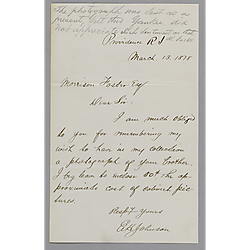 The photograph was sent as a
present, but this Yankee did
not appreciate that sentiment in that
Providence R. I.
March 13, 1878
Morrison Foster Esq
Dear Sir:
I am much obliged
to you for remembering my
wish to have in my collection
a photograph of your brother.
I beg leave to inclose 50¢ the ap-
proximate cost of cabinet pic-
tures.
Resp't Yours
Johnson